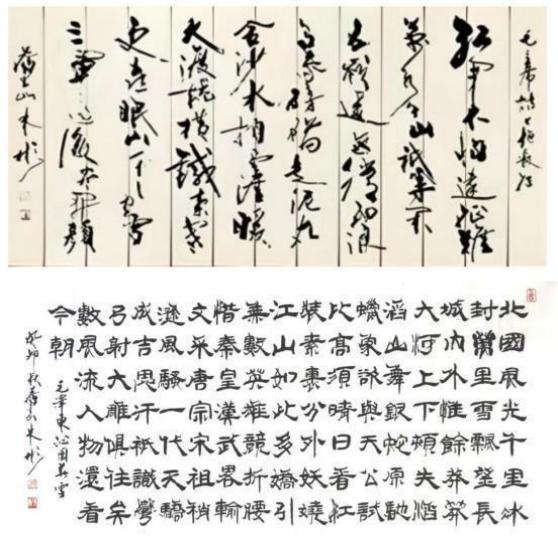 毛主席詩七律長征
紅軍不怕遠征難
萬水千山祇等閑
五嶺逶迤騰細浪
烏蒙磅礴走泥丸
金沙水拍雲崖暖
大渡橋橫鐵索寒
更喜岷山千里雪
三軍過後盡開顏
山朱彬
北國風光千里冰
封萬里雪飄望長
城内外惟餘莽莽
大河上下頓失滔
滔山舞銀蛇原馳
蠟象欲與天公試
比高須晴日看紅
裝素裹分外妖嬈
江山如此多嬌引
無數英雄競折腰
惜秦皇漢武略輸
文采唐宗宋祖稍
遜風騷一代天驕
成吉思汗祇識彎
弓射大雕俱往矣
數風流人物還看
今朝
毛澤東沁園春雪
癸卯秋朱彬